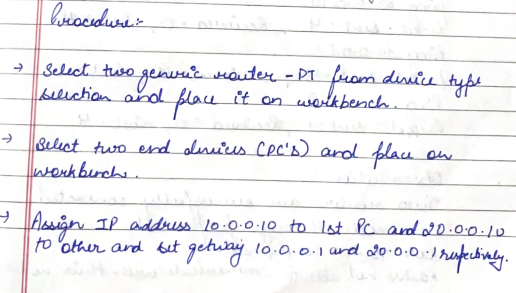 Procedure:-
→ Select two generic router - PT from device type
selection and place it on workbench.
→ Select two end devices (PC's) and place on
workbench.
→ Assign IP address 10.0.0.10 to 1st PC and 20.0.0.10
to other and set getway 10.0.0.1 and 20.0.0.1 respectively.